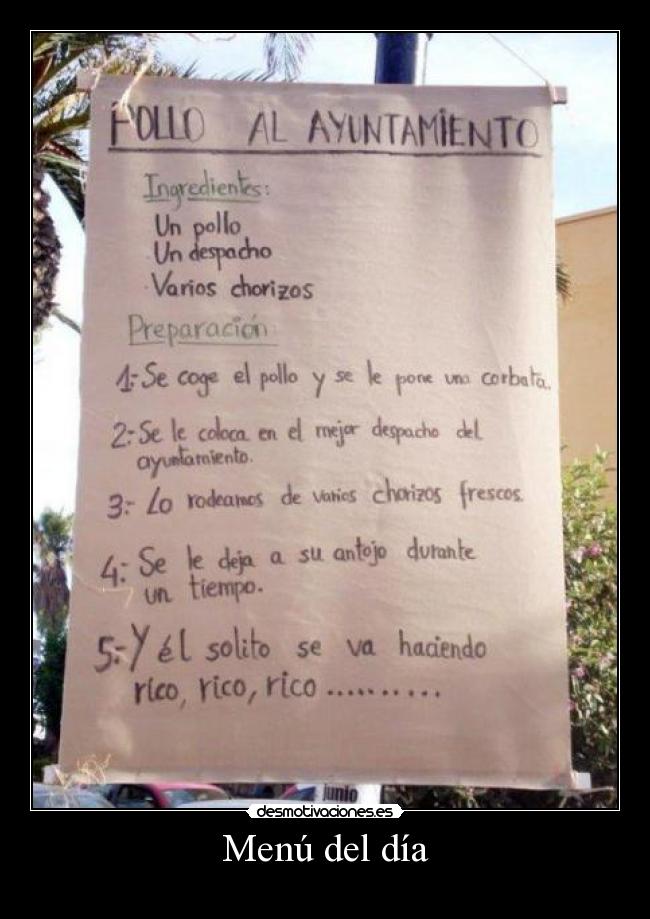 POLLO AL AYUNTAMIENTO
Ingredientes:
Un pollo
Un despacho
Varios chorizos
Preparación
1:- Se coge el pollo y se le pone una corbata.
2:- Se le coloca en el mejor despacho del
ayuntamiento.
3:- Lo rodeamos de varios chorizos frescos.
4:- Se le deja a su antojo durante
un tiempo.
5:- Y él solito se va haciendo
rico, rico, rico ..........
junio
desmotivaciones.es
Menú del día